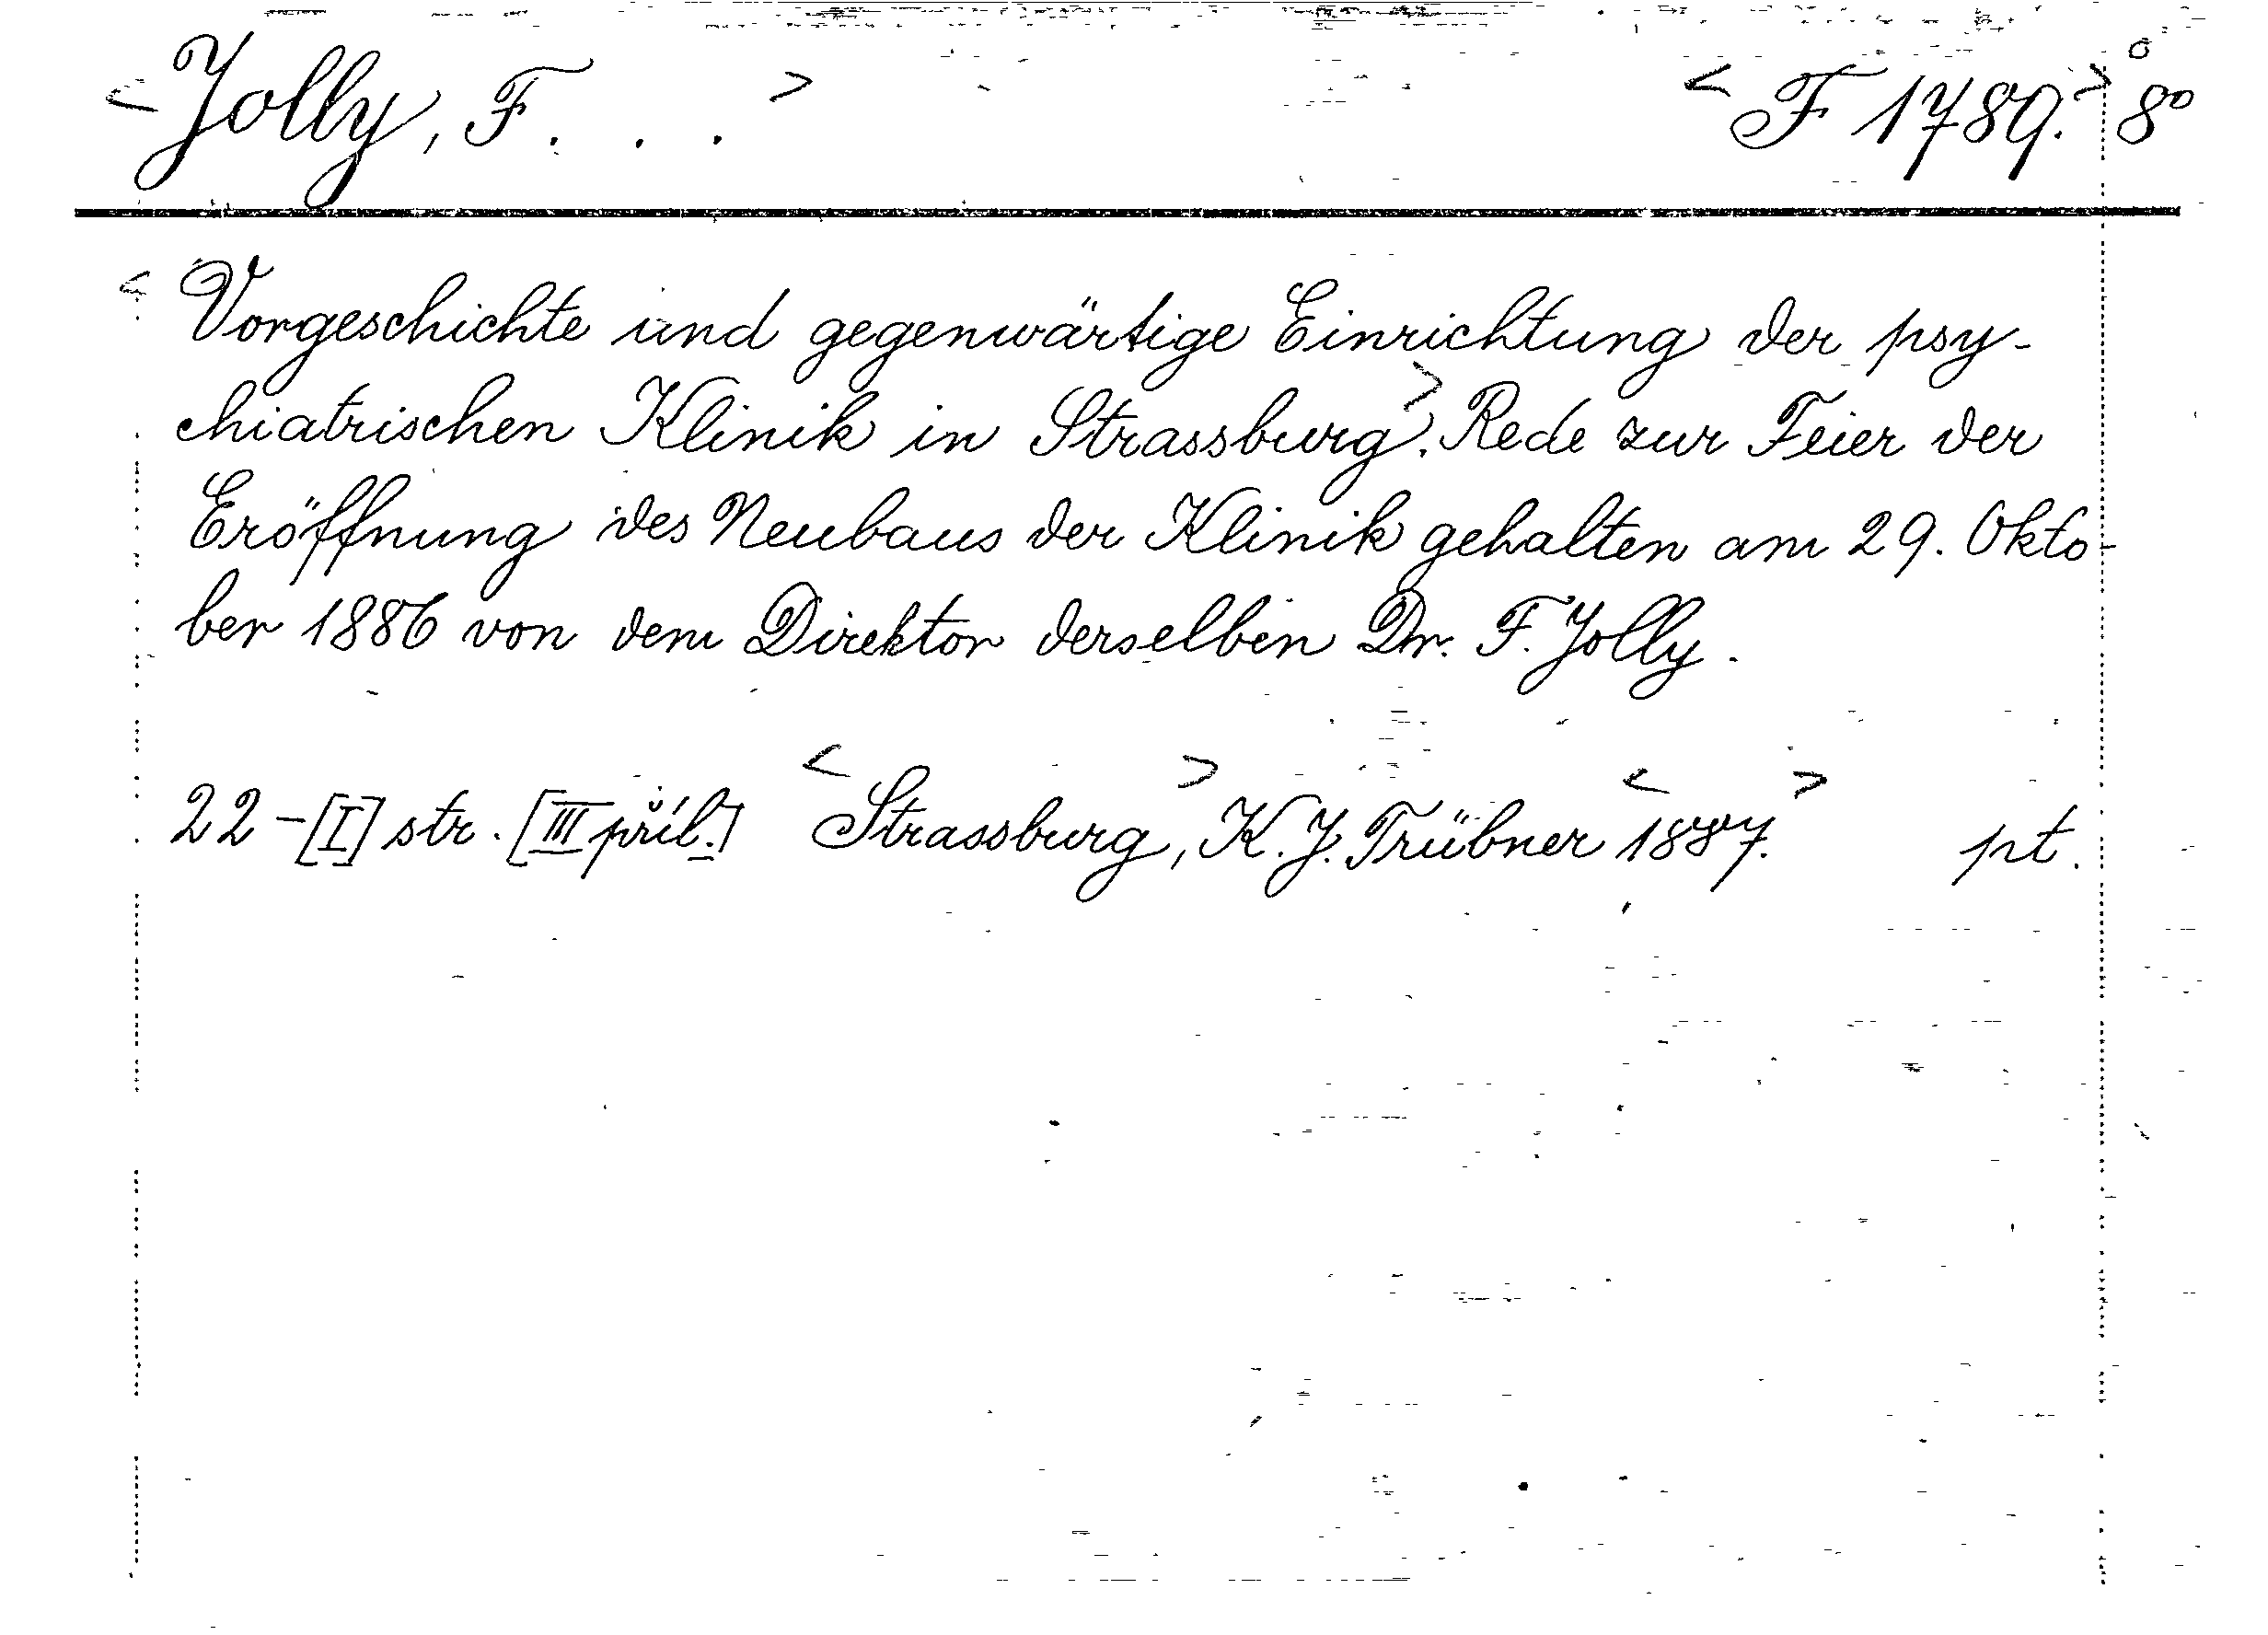 <Jolly, F. . .> <F 1789.> 8°
<Vorgeschichte und gegenwärtige Einrichtung der psy-
chiatrischen Klinik in Strassburg>. Rede zur Feier der
Eröffnung des Neubaus der Klinik gehalten am 29. Okto-
ber 1886 von dem Direktor derselben Dr. F. Jolly.
22-[I] str. [III příl.] <Strassburg>, K. J. Trübner <1887.> pt.